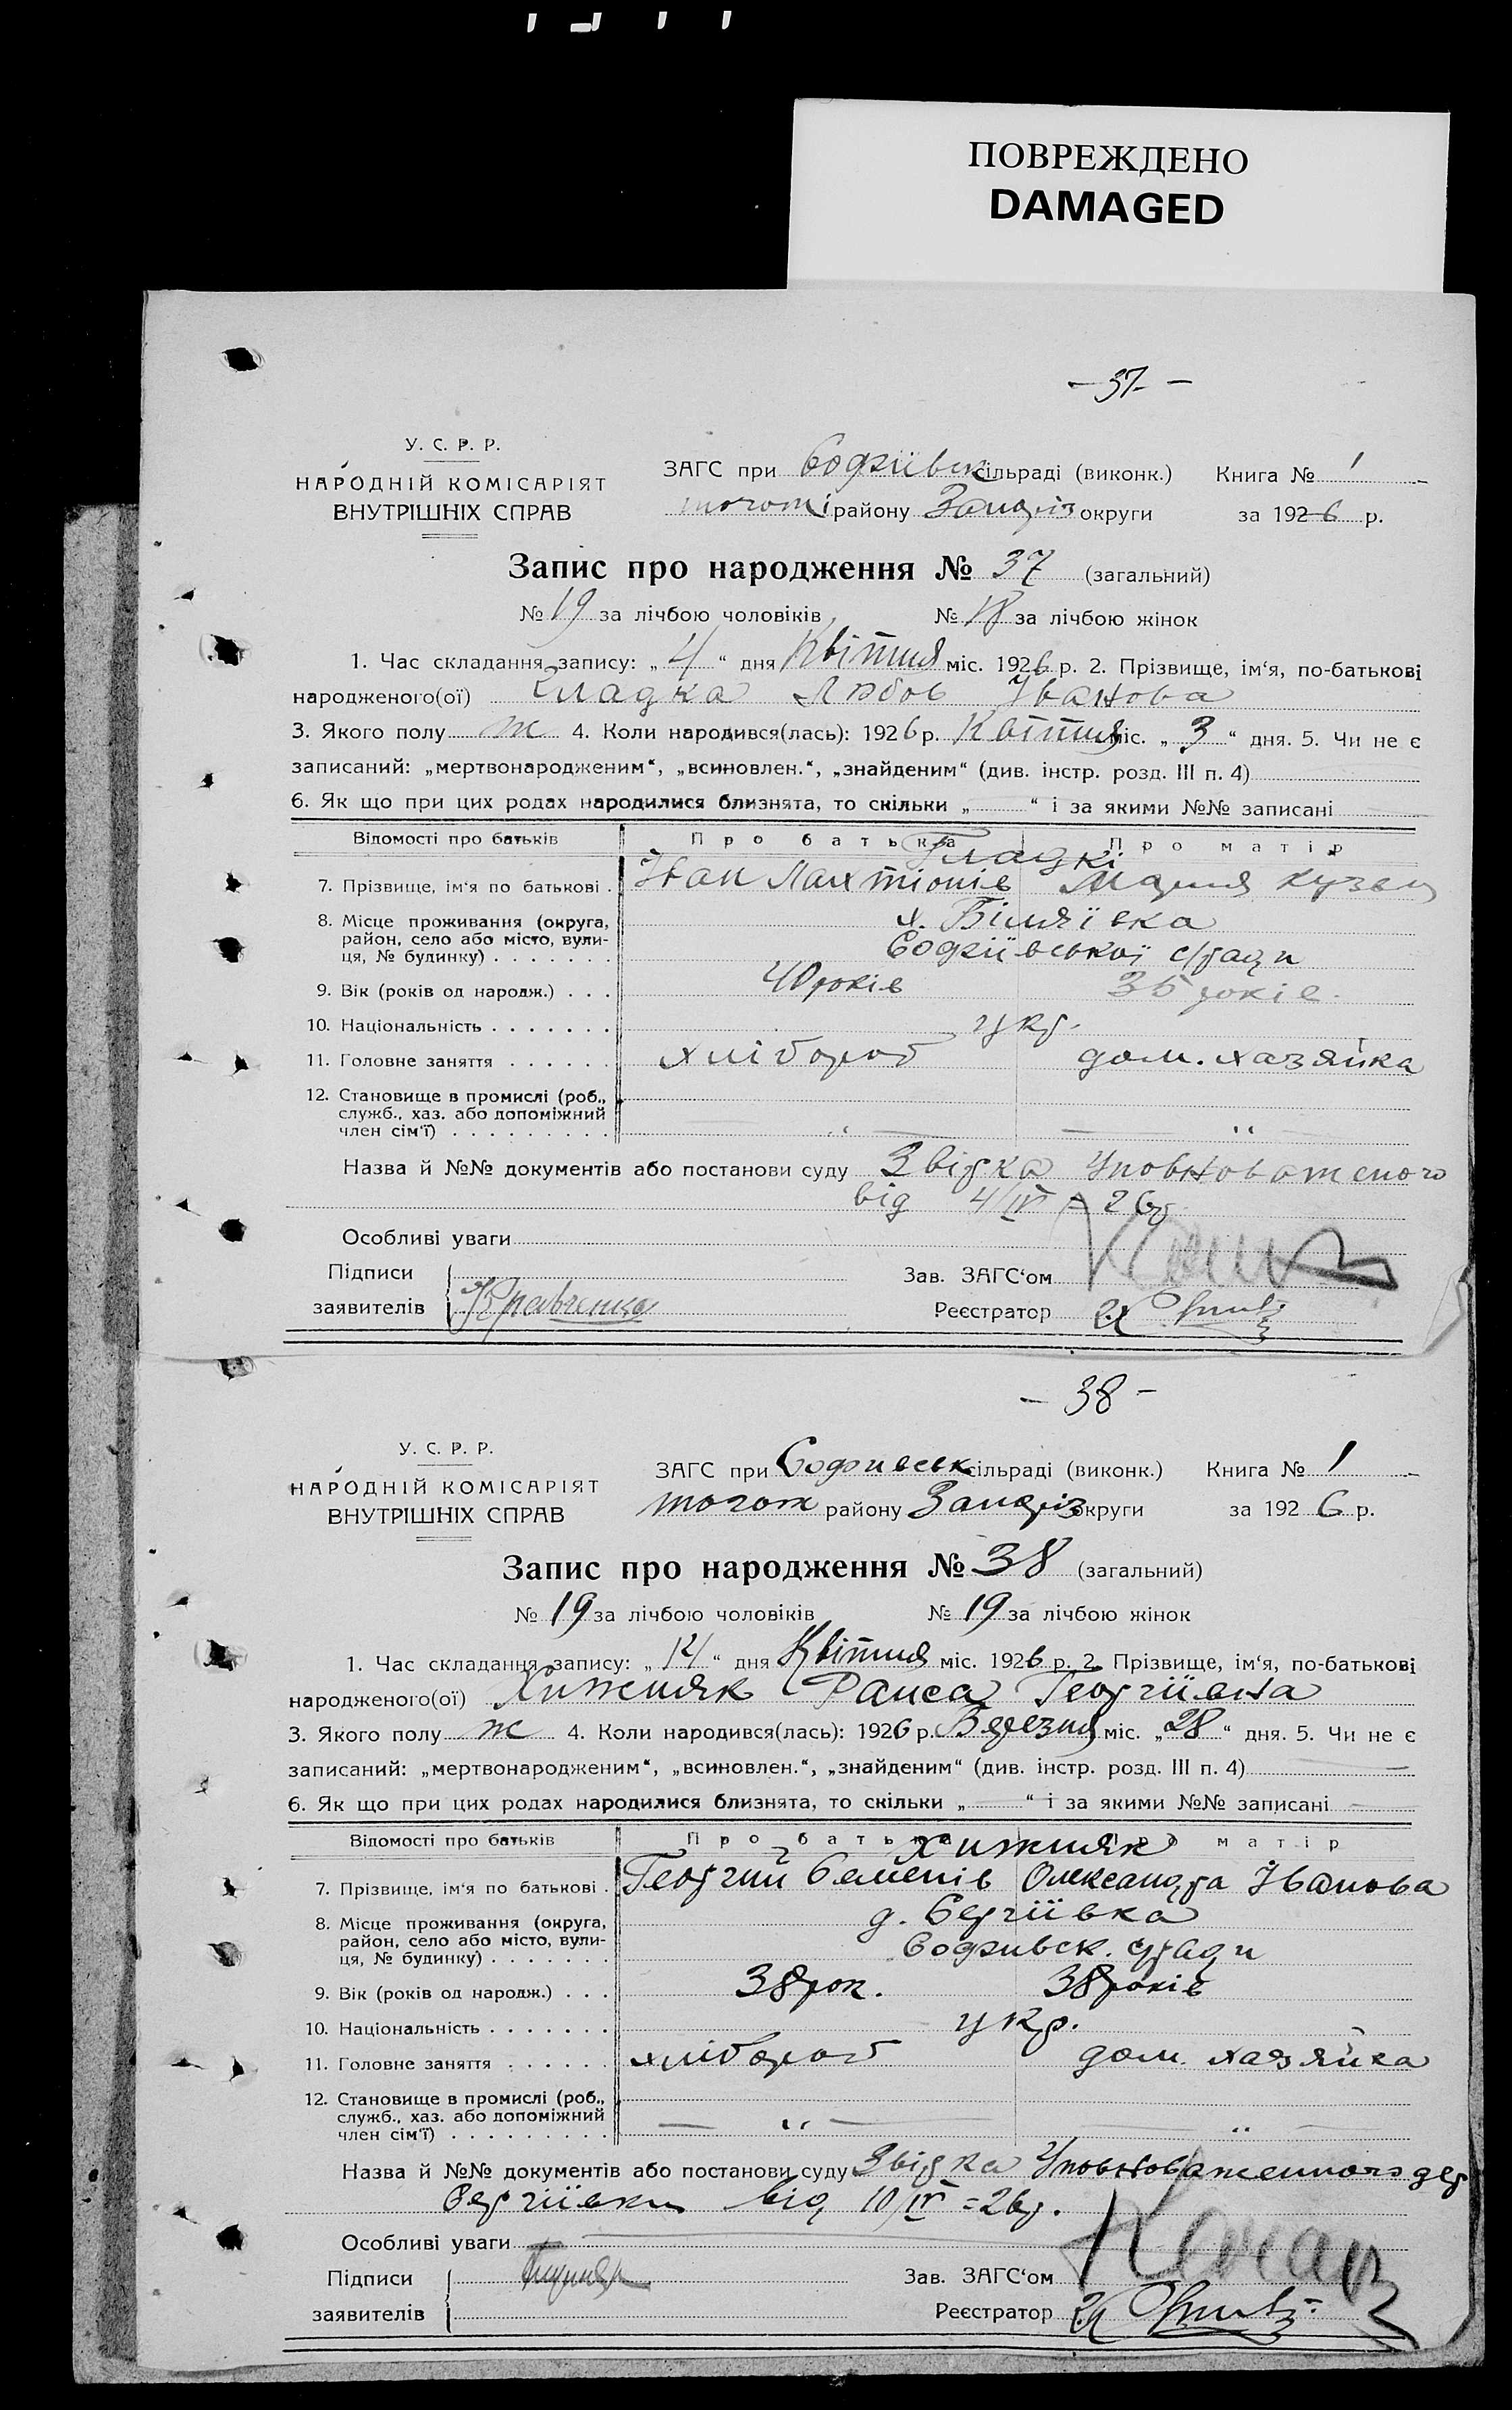 ПОВРЕЖДЕНО
DAMAGED
— 37 —
У. С. Р. Р.
НАРОДНІЙ КОМІСАРІЯТ
ВНУТРІШНІХ СПРАВ
ЗАГС при Софіівськ сільраді (виконк.) Книга № 1
тогож району Запоріз округи за 1926 р.
Запис про народження № 37 (загальний)
№ 19 за лічбою чоловіків № 18 за лічбою жінок
1. Час складання запису: „ 4 “ дня Квітня міс. 1926 р. 2. Прізвище, ім‘я, по-батькові
народженого(ої) Гладка Любов Іванова
3. Якого полу ж 4. Коли народився(лась): 1926 р. Квітня міс. „ 3 “ дня. 5. Чи не є
записаний: „мертвонародженим“, „всиновлен.“, „знайденим“ (див. інстр. розд. III п. 4)
6. Як що при цих родах народилися близнята, то скільки „ — “ і за якими №№ записані
Відомості про батьків Про батька Про матір
Гладкі
7. Прізвище, ім‘я по батькові . Іван Лахтіонів Мария Кузьм
8. Місце проживання (округа, х. Біляївка
район, село або місто, вули-
ця, № будинку) . . . . . . . Софіївської с/ради
9. Вік (років од народж.) . . . 40 років 35 років.
10. Національність . . . . . . . укр.
11. Головне заняття . . . . . . хлібороб дом. хазяйка
12. Становище в промислі (роб.,
служб., хаз. або допоміжний
член сім‘ї) . . . . . . . . . — „ — — „
Назва й №№ документів або постанови суду Звідка Уповноваженого
від 4/IV - 26р
Особливі уваги
Підписи Зав. ЗАГС‘ом
заявителів Кравченко Реєстратор
— 38 —
У. С. Р. Р.
НАРОДНІЙ КОМІСАРІЯТ
ВНУТРІШНІХ СПРАВ
ЗАГС при Софиевськ сільраді (виконк.) Книга № 1
тогож району Запоріз округи за 1926 р.
Запис про народження № 38 (загальний)
№ 19 за лічбою чоловіків № 19 за лічбою жінок
1. Час складання запису: „ 14 “ дня Квітня міс. 1926 р. 2. Прізвище, ім‘я, по-батькові
народженого(ої) Хижняк Раиса Георгіївна
3. Якого полу ж 4. Коли народився(лась): 1926 р. Березня міс. „ 28 “ дня. 5. Чи не є
записаний: „мертвонародженим“, „всиновлен.“, „знайденим“ (див. інстр. розд. III п. 4)
6. Як що при цих родах народилися близнята, то скільки „ — “ і за якими №№ записані
Відомості про батьків Про батька Про матір
Хижняк
7. Прізвище, ім‘я по батькові . Георгий Семенів Олександра Іванова
8. Місце проживання (округа, д. Сергіівка
район, село або місто, вули-
ця, № будинку) . . . . . . . Софивск. с/ради
9. Вік (років од народж.) . . . 38 рок. 38 років
10. Національність . . . . . . . укр.
11. Головне заняття . . . . . . хлібороб дом. хазяйка
12. Становище в промислі (роб.,
служб., хаз. або допоміжний
член сім‘ї) . . . . . . . . . — „ — „ —
Назва й №№ документів або постанови суду Звідка Уповноваженного дер
Сергіівки від 10/IV - 26р.
Особливі уваги
Підписи Зав. ЗАГС‘ом
заявителів Реєстратор